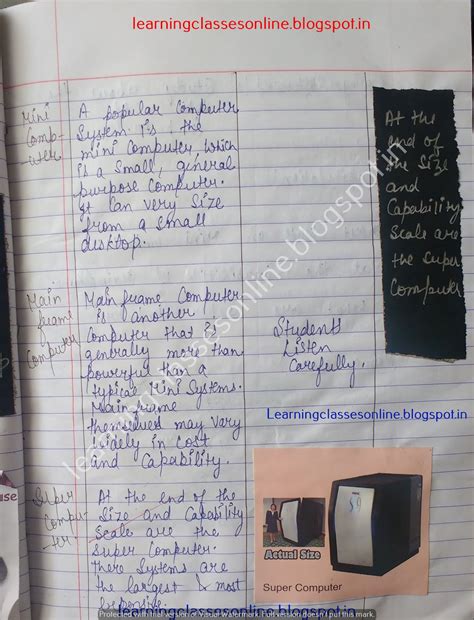 learningclassesonline.blogspot.in
Mini
Comp-
uter
A popular Computer
System is the
mini Computer which
is a small, general
purpose Computer.
It Can very Size
from a small
desktop.
At the
end of
the Size
and
Capability
Scale are
the super
Computer
Main
frame
Computer
Mainframe Computer
is another
Computer that is
generally more than
powerful than a
typical Mini Systems.
Mainframe
themselves may vary
widely in cost
and Capability.
Students
Listen
Carefully.
Learningclassesonline.blogspot.in
learningclassesonline.blogspot.in
use
Super
Compu-
ter
At the end of the
Size and Capability
Scale are the
Super Computer.
There Systems are
the largest & most
Expensive.
Actual Size
Super Computer
Protected with trial version of Visual Watermark. Full version doesn't put this mark.
learningclassesonline.blogspot.in